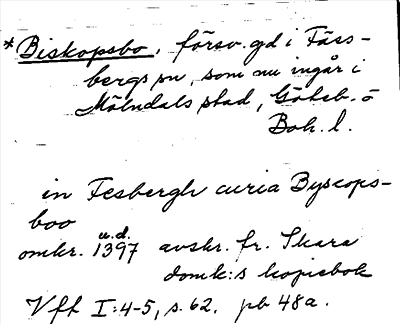 *Biskopsbo, försv. gd i Fäss-
bergs sn, som nu ingår i
Mölndals stad, Göteb. o
Boh. l.
in Fesbergh curia Byscops-
boo
u.d.
omkr. 1397 avskr. fr. Skara
domk:s kopiebok
Vfh I:4-5, s. 62. pb 48a.